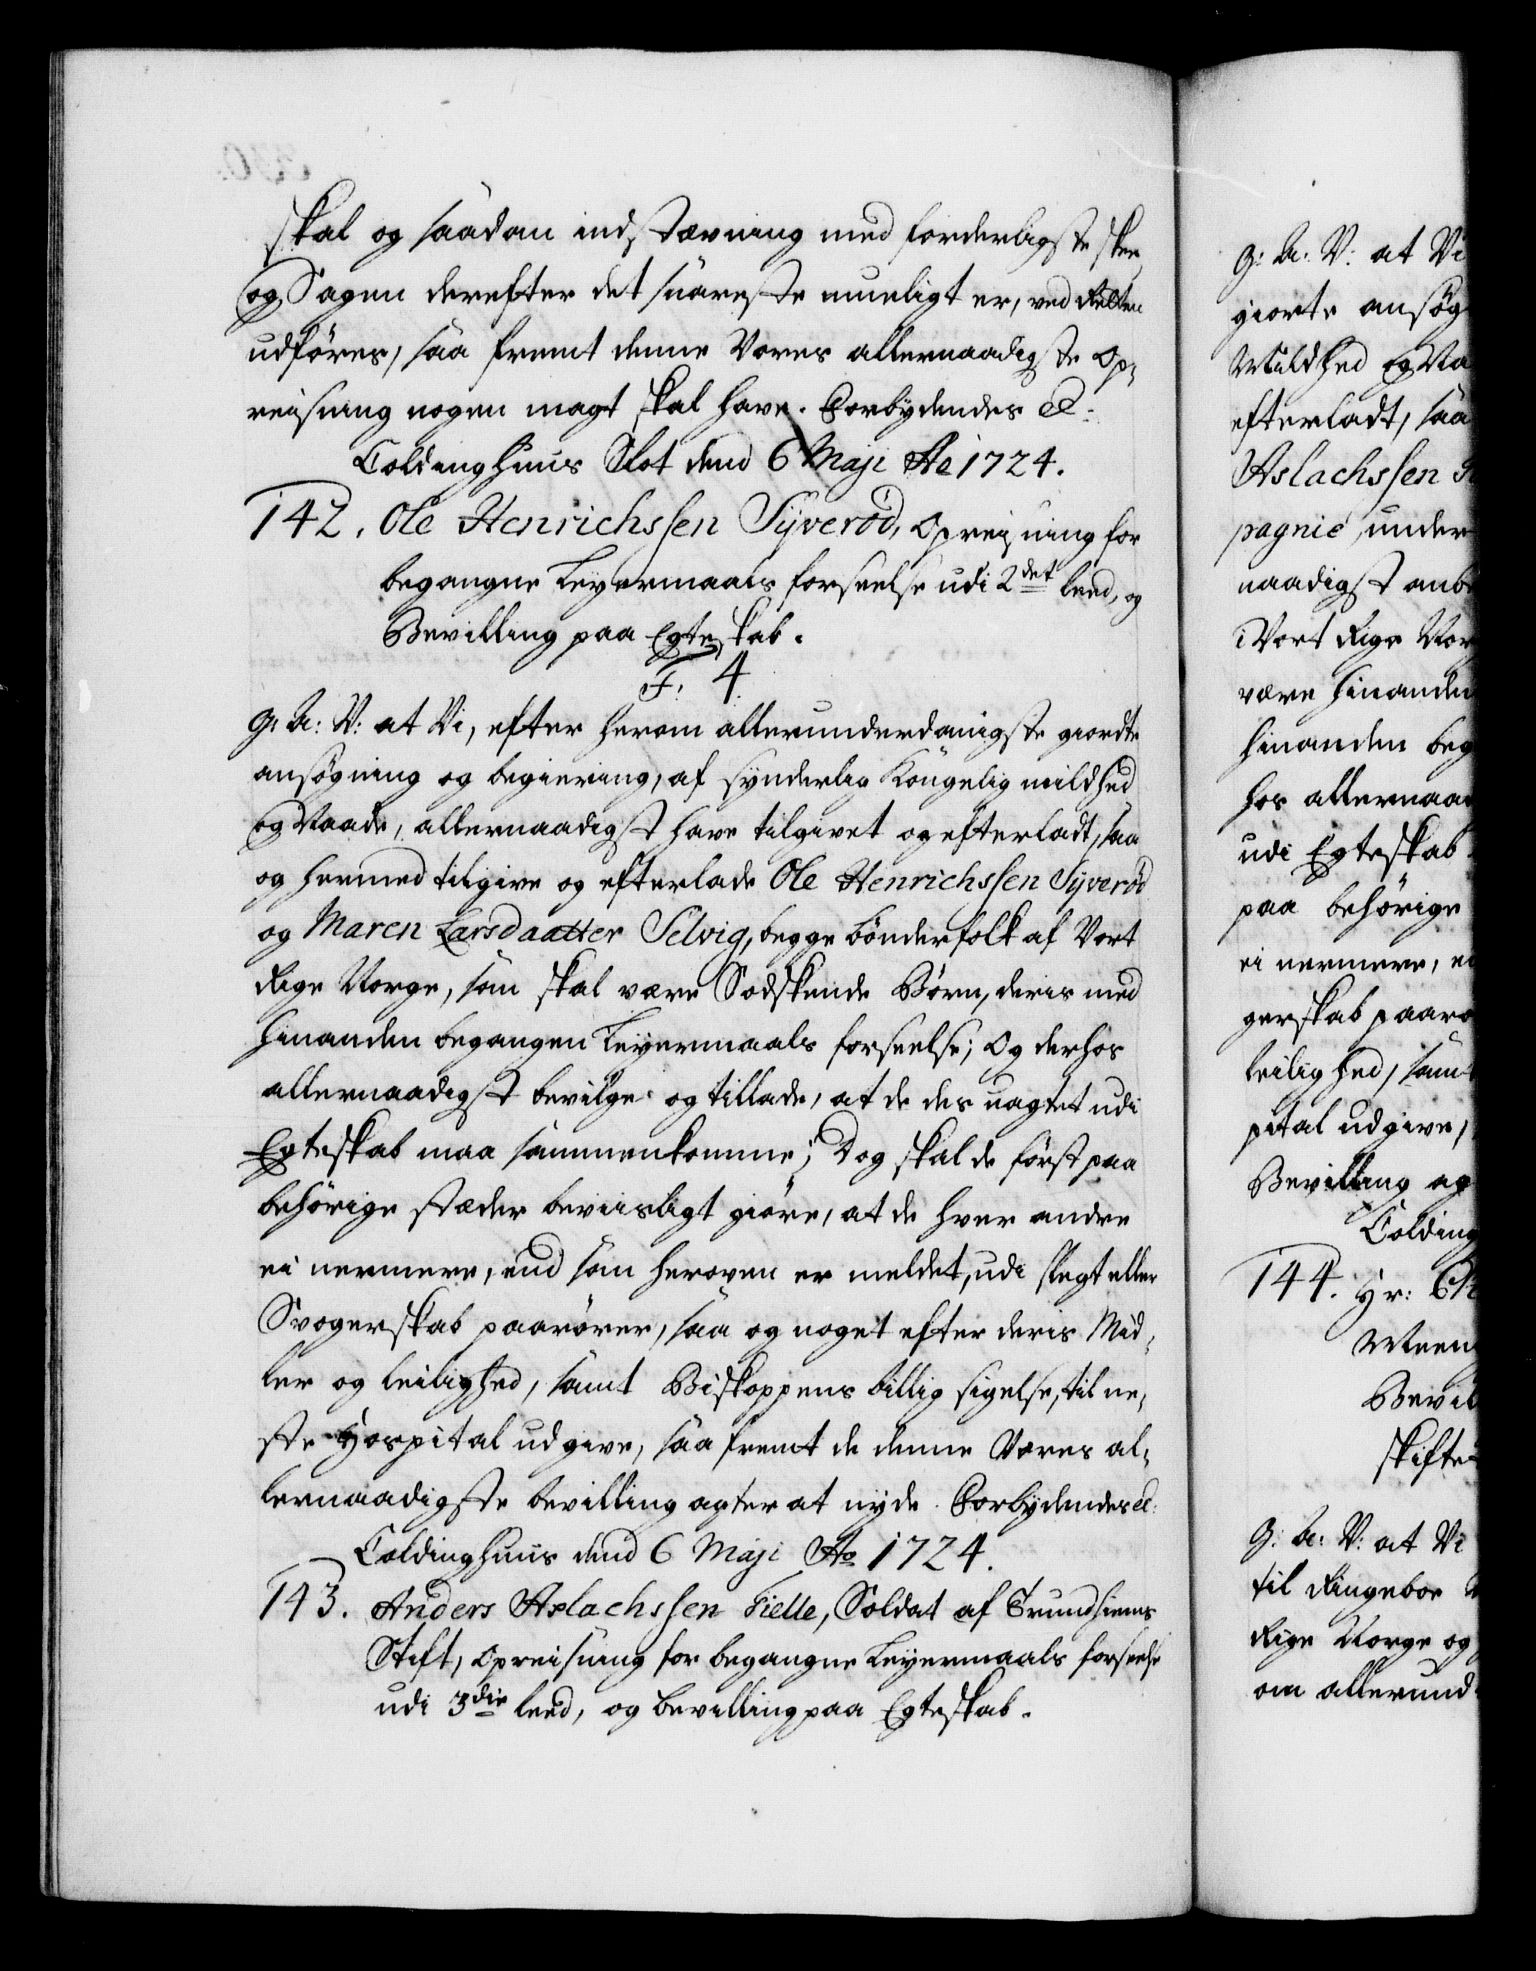 skal og saadan indstævning med forderligste skee,
og Sagen derefter det snareste mueligt er, ved Retten
udføres, saa fremt denne Vores allernaadigste Op-
reisning nogen magt skal have. Forbydendes &:
Coldinghuus Slot dend 6 Maji Ao 1724.
142. Ole Henrichssen Syverød, Opreisning for
begangne Leyermaals forseelse udi 2det leed, og
Bevilling paa Egteskab.
F: 4.
G: A: V: at Vi, efter herom allerunderdanigste giordte
ansøgning og begiering, af synderlig Kongelig mildhed
og Naade, allernaadigst have tilgivet og efterladt, saa
og hermed tilgive og efterlade Ole Henrichssen Syverød
og Maren Larsdaatter Selvig, begge bønderfolk af Vort
Rige Norge, som skal være Sødskende Børn, deris med
hinanden begangen Leyermaals forseelse; Og derhos
allernaadigst bevilge og tillade, at de des uagtet udi
Egteskab maa sammenkomme; Dog skal de først paa
behørige stæder beviisligt giøre, at de hver andre
ei nermere, end som heroven er meldet, udi slegt eller
Svogerskab paarører, saa og noget efter deris Mid-
ler og leilighed, samt Biskoppens billig sigelse, til ne-
ste Hospital udgive, saa fremt de denne Vores al-
lernaadigste bevilling agter at nyde. Forbydendes &:
Coldinghuus dend 6 Maji Ao 1724.
143. Anders Aslachssen Fielle, Soldat af Trundhiems
Stift, Opreisning for begangne Leyermaals forseelse
udi 3die leed, og bevilling paa Egteskab.
G: A: V: at Vi
giorte ansøg
Mildhed og Na
efterladt, saa
Aslachssen
pagnie, under
naadigst anbe
i Vort Rige Nor
være hinanden
hinanden beg
hos allernaad
udi Egteskab
paa behørige
ei nermere, en
gerskab paarø
leilighed, samt
pital udgive,
Bevilling ag
Colding
144. Hr:
Meen
Bevil
skifte
G: A: V: at Vi
til Ringeboe
Rige Norge og
om allerund